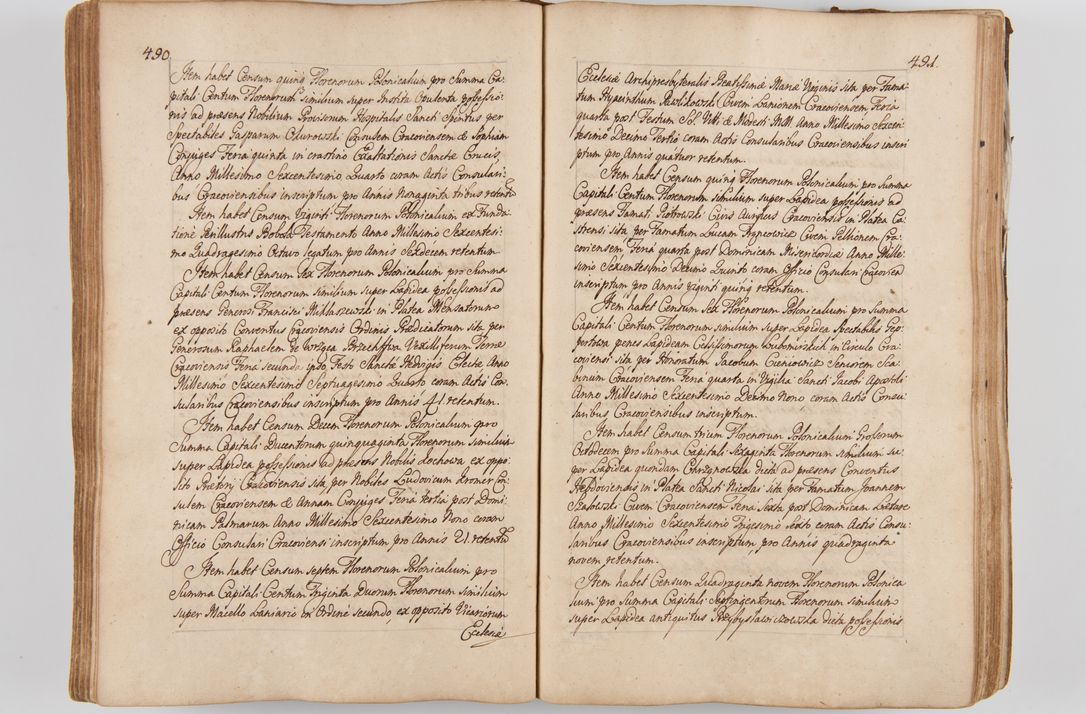 490
Item habet Censum quinq Florenorum Polonicalium pro Summa Ca=
pitali Centum Florenorum similium super Instita Opulenta possessio=
nis ad præsens Nobilium Provisorum Hospitalis Sancti Spiritus per
Spectabiles Gasparum Consulem Cracoviensem & Sophiam
Conjuges Feria quinta in crastino Exaltationis Sanctæ Crucis
Anno Millesimo Sexcentesimo Quarto coram Actis Consulari=
bus Cracoviensibus inscriptum pro Annis Nonaginta tribus retentū
Item habet Censum Viginti Florenorum Polonicalium ex Funda=
tione Perillustris Bobola Testamento Anno Millesimo Sexcentesi=
mo Quadragesimo Octavo legatum pro Annis Sexdecem retentum
Item habet Censum Sex Florenorum Polonicalium pro Summa
Capitali Centum Florenorum similium super Lapidea possessionis ad
præsens Generosi Francisci Miklaszewski in Platea Mensatorum
ex opposito Conventus Cracoviensis Ordinis Prædicatorum sita per
Generosum Raphaelem de Wrzęca Brzechffwa Vexilliferum Terræ
Cracoviensis Feria secunda ipso Festo Sanctæ Hedvigis Electæ Anno
Millesimo Sexcentesimo Septuagesimo Quarto coram Actis Con=
sularibus Cracoviensibus inscriptum pro Annis 41. retentum.
Item habet Censum Decem Florenorum Polonicalium pro
Summa Capitali Ducentorum quinquaginta Florenorum similium
super Lapidea possessionis ad præsens Nobilis Rochowa ex oppo=
sito Prætorij Cracoviensis sita per Nobiles Ludovicum Kromer Con=
sulem Cracoviensem & Annam Conjuges Feria tertia post Domi=
nicam Palmarum Anno Millesimo Sexcentesimo Nono coram
Officio Consulari Cracoviensi inscriptum pro Annis 21. retentū
Item habet Censum septem Florenorum Polonicalium pro
Summa Capitali Centum Triginta Duorum Florenorum Similium
super Macello Laniario in Ordine secundo, ex opposito Vicariorum
Ecclesiæ
491.
Ecclesiæ Archipresbyteralis Beatissimæ Mariæ Virginis sita per Fama=
tum Hyacinthum Pawlikowski Civem Lanionem Cracoviensem Feria
quarta post Festum SS. Viti & Modesti MM. Anno Millesimo Sexcen=
tesimo Decimo Tertio coram Actis Consularibus Cracoviensibus inscri=
ptum pro Annis quatuor retentum.
Item habet Censum quinq Florenorum Polonicalium pro Summa
Capitali Centum Florenorum similium super Lapidea possessionis ad
præsens Famati Piotrowski Civis Aurifices Cracoviensis in Platea Ca=
strensi sita per Famatum Lucam Civem Pellionem Cra=
coviensem Feria quarta post Dominicam Misericordiæ Anno Mille=
simo Sexcentesimo Decimo Quinto coram Officio Consulari Cracovien
inscriptum pro Annis viginti quinq retentum.
Item habet Censum Sex Florenorum Polonicalium pro Summa
Capitali Centum Florenorum similium super Lapidea Spectabilis
penes Lapideam Celsissimorum Lubomirskich in Circulo Cra=
coviensi sita per Honoratum Jacobum Cieniowicz Seniorem Sca=
binum Cracoviensem Feria quarta in Vigilia Sancti Jacobi Apostoli
Anno Millesimo Sexcentesimo Decimo Nono coram Actis Consu=
laribus Cracoviensibus inscriptum.
Item habet Censum trium Florenorum Polonicalium Grossorum
Octodecem pro Summa Capitali Sexaginta Florenorum similium su=
per Lapidea quondam Chrzanowska dicta ad præsens Conventus
Hebdoviensis in Platea Sancti Nicolai sita per Famatum Joannem
Szawlski Civem Cracoviensem Feria Sexta post Dominicam Lætare
Anno Millesimo Sexcentesimo Trigesimo sexto coram Actis Consu=
laribus Cracoviensibus inscriptum, pro Annis quadraginta
novem retentum.
Item habet Censum Quadraginta novem Florenorum Polonica
lium pro Summa Capitali Septingentorum Florenorum similium
super Lapidea antiquitus Przybysławiczowska dicta possessionis